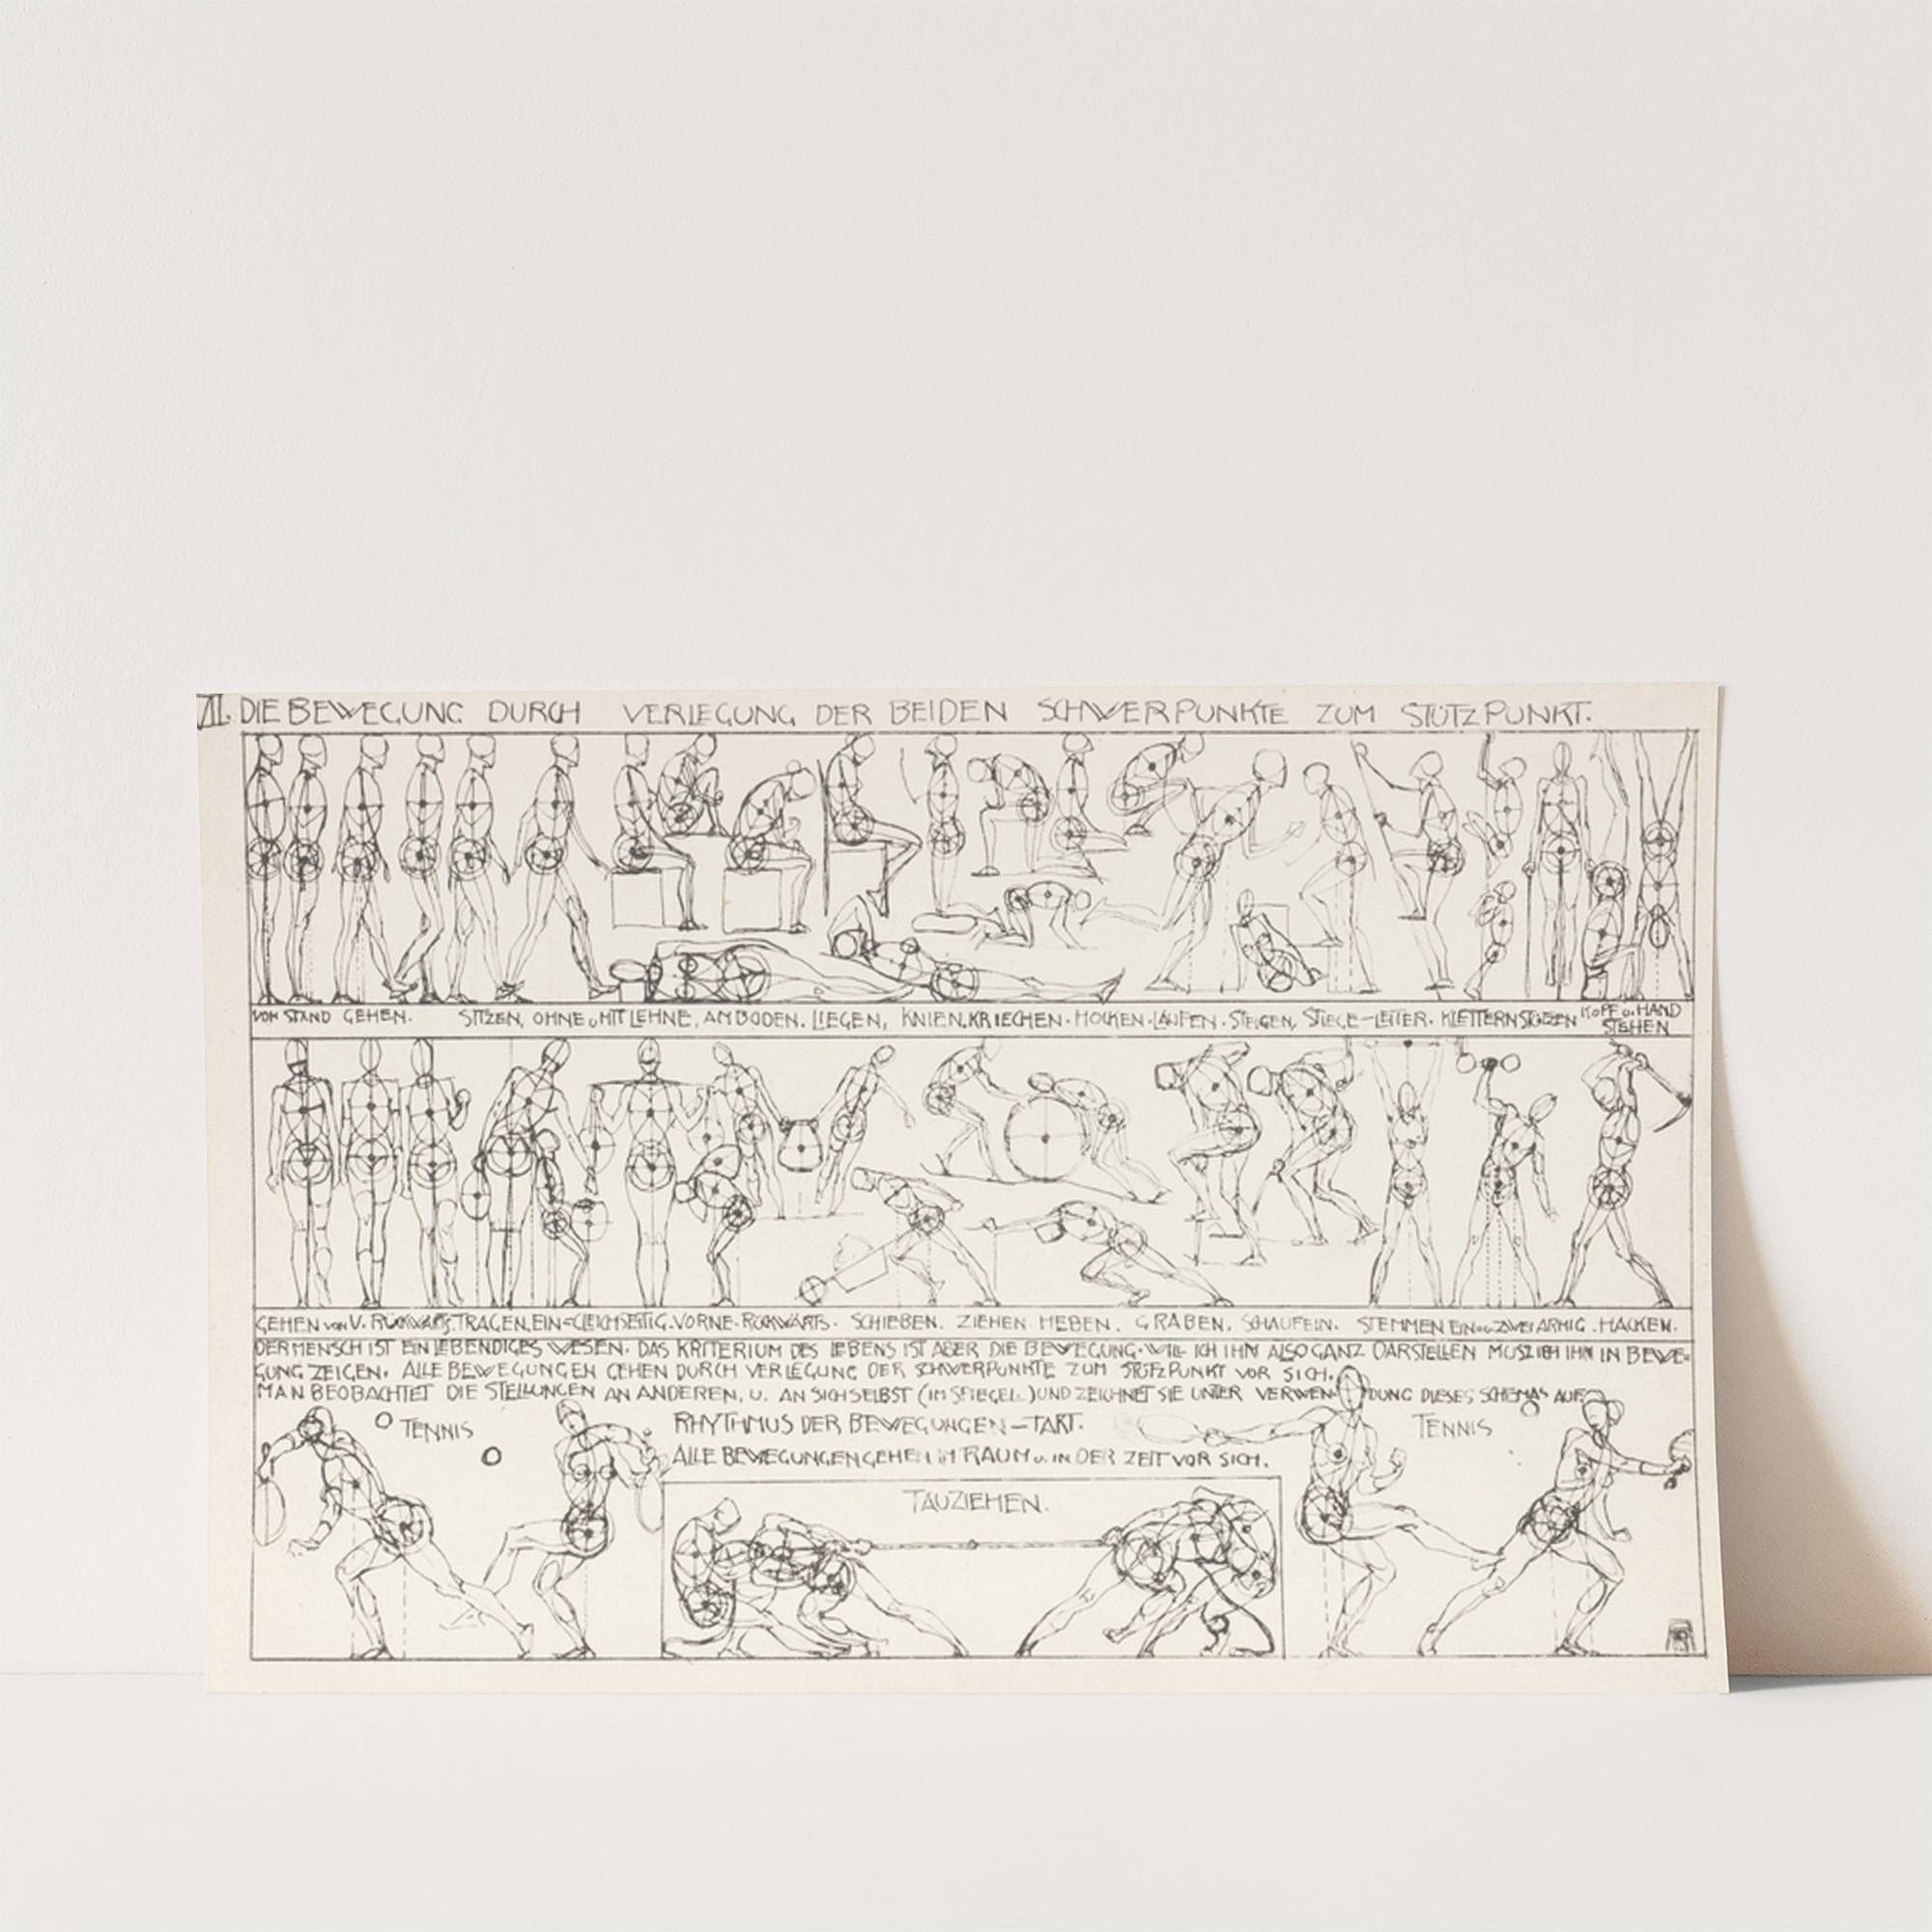 VII. DIE BEWEGUNG DURCH VERLEGUNG DER BEIDEN SCHWERPUNKTE ZUM STÜTZPUNKT.
VOM STAND GEHEN. SITZEN, OHNE u. MIT LEHNE, AM BODEN. LIEGEN, KNIEN. KRIECHEN. HOCKEN. LAUFEN. STEIGEN, STIEGE-LEITER. KLETTERN STÜTZEN KOPF u. HAND
STEHEN
GEHEN von V. RÜCKWÄRTS. TRAGEN, EIN= GLEICHSEITIG. VORNE. RÜCKWÄRTS. SCHIEBEN. ZIEHEN. HEBEN. GRABEN. SCHAUFELN. STEMMEN EIN= u. ZWEIARMIG. HACKEN.
DER MENSCH IST EIN LEBENDIGES WESEN. DAS KRITERIUM DES LEBENS IST ABER DIE BEWEGUNG. WILL ICH IHN ALSO GANZ DARSTELLEN MUSZ ICH IHN IN BEWE=
GUNG ZEIGEN. ALLE BEWEGUNGEN GEHEN DURCH VERLEGUNG DER SCHWERPUNKTE ZUM STÜTZPUNKT VOR SICH.
MAN BEOBACHTET DIE STELLUNGEN AN ANDEREN, U. AN SICH SELBST (IM SPIEGEL.) UND ZEICHNET SIE UNTER VERWENDUNG DIESES SCHEMAS AUF.
TENNIS
RHYTHMUS DER BEWEGUNGEN – TAKT.
TENNIS
ALLE BEWEGUNGEN GEHEN IM RAUM u. IN DER ZEIT VOR SICH.
TAUZIEHEN.